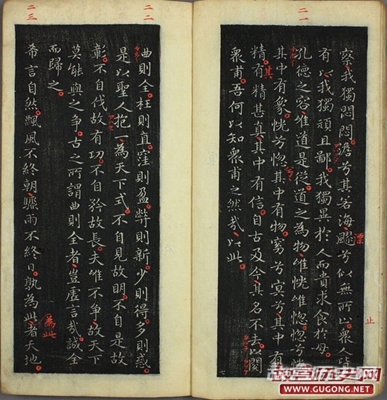 二一
察我獨悶悶澹兮其若海飂兮似無所
有以我獨頑且鄙我獨異於人而貴求食於母
孔德之容唯道是從道之為物唯恍唯惚惚
其中有象恍兮惚其中有物窈兮冥兮其中有
精其精甚真其中有信自古及今其名不去以閱
眾甫吾何以知眾甫之然哉以此
止
二二
曲則全枉則直窪則盈弊則新少則得多則惑
是以聖人抱一為天下式不自見故明不自是故
彰不自伐故有功不自矜故長夫唯不爭故天下
莫能與之爭古之所謂曲則全者豈虛言哉誠全
而歸之
二三
希言自然飄風不終朝驟雨不終日孰為此者天地
為此
www.gugong.net